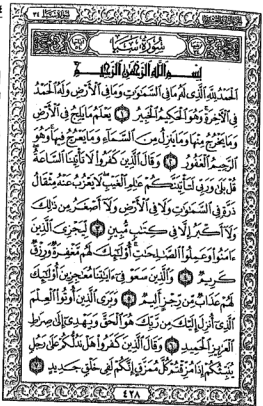 سُورَةُ سَبَإٍ ٣٤
سُورَةُ سَبَإٍ
بِسْمِ ٱللَّهِ ٱلرَّحْمَٰنِ ٱلرَّحِيمِ
ٱلْحَمْدُ لِلَّهِ ٱلَّذِى لَهُۥ مَا فِى ٱلسَّمَٰوَٰتِ وَمَا فِى ٱلْأَرْضِ وَلَهُ ٱلْحَمْدُ
فِى ٱلْءَاخِرَةِ وَهُوَ ٱلْحَكِيمُ ٱلْخَبِيرُ ١ يَعْلَمُ مَا يَلِجُ فِى ٱلْأَرْضِ
وَمَا يَخْرُجُ مِنْهَا وَمَا يَنزِلُ مِنَ ٱلسَّمَآءِ وَمَا يَعْرُجُ فِيهَا وَهُوَ
ٱلرَّحِيمُ ٱلْغَفُورُ ٢ وَقَالَ ٱلَّذِينَ كَفَرُوا۟ لَا تَأْتِينَا ٱلسَّاعَةُ
قُلْ بَلَىٰ وَرَبِّى لَتَأْتِيَنَّكُمْ عَٰلِمِ ٱلْغَيْبِ لَا يَعْزُبُ عَنْهُ مِثْقَالُ
ذَرَّةٍ فِى ٱلسَّمَٰوَٰتِ وَلَا فِى ٱلْأَرْضِ وَلَآ أَصْغَرُ مِن ذَٰلِكَ
وَلَآ أَكْبَرُ إِلَّا فِى كِتَٰبٍ مُّبِينٍ ٣ لِّيَجْزِىَ ٱلَّذِينَ
ءَامَنُوا۟ وَعَمِلُوا۟ ٱلصَّٰلِحَٰتِ أُو۟لَٰٓئِكَ لَهُم مَّغْفِرَةٌ وَرِزْقٌ
كَرِيمٌ ٤ وَٱلَّذِينَ سَعَوْ فِىٓ ءَايَٰتِنَا مُعَٰجِزِينَ أُو۟لَٰٓئِكَ
لَهُمْ عَذَابٌ مِّن رِّجْزٍ أَلِيمٌ ٥ وَيَرَى ٱلَّذِينَ أُوتُوا۟ ٱلْعِلْمَ
ٱلَّذِىٓ أُنزِلَ إِلَيْكَ مِن رَّبِّكَ هُوَ ٱلْحَقَّ وَيَهْدِىٓ إِلَىٰ صِرَٰطِ
ٱلْعَزِيزِ ٱلْحَمِيدِ ٦ وَقَالَ ٱلَّذِينَ كَفَرُوا۟ هَلْ نَدُلُّكُمْ عَلَىٰ رَجُلٍ
يُنَبِّئُكُمْ إِذَا مُزِّقْتُمْ كُلَّ مُمَزَّقٍ إِنَّكُمْ لَفِى خَلْقٍ جَدِيدٍ ٧
٤٢٨